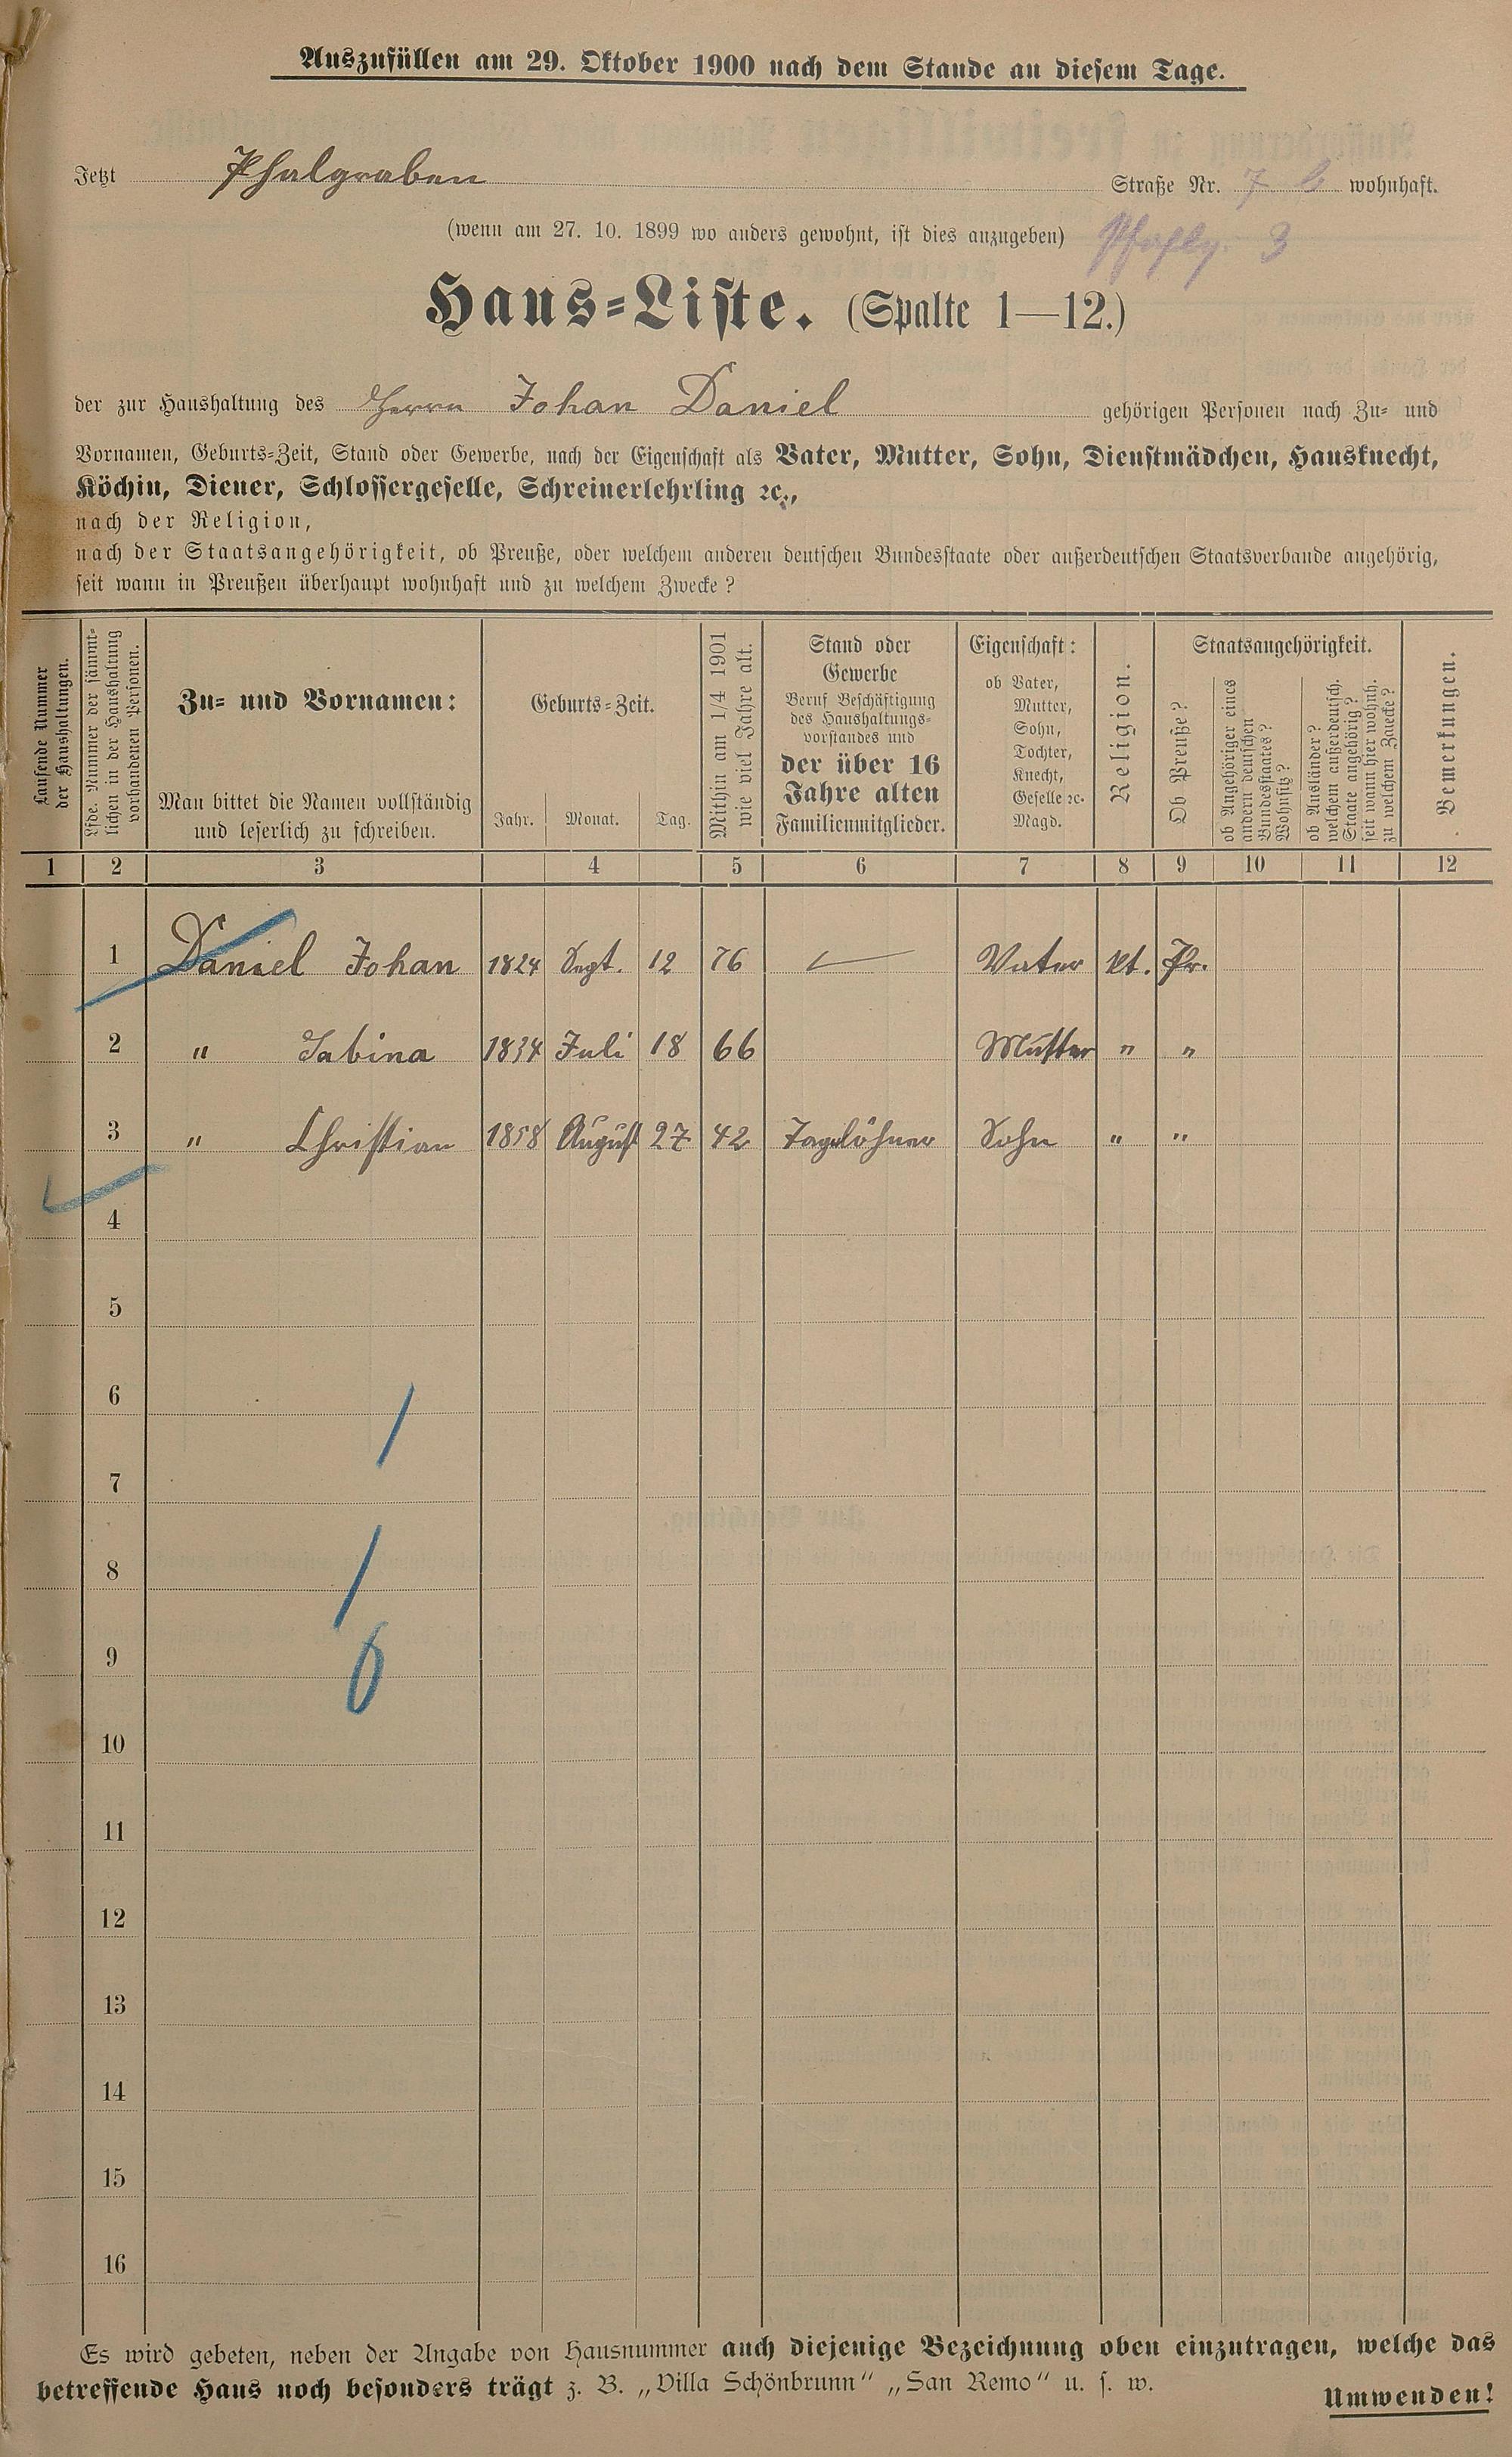 Auszufüllen am 29. Oktober 1900 nach dem Stande an diesem Tage.
Jetzt Phalgraben Straße Nr. 7 b wohnhaft.
(wenn am 27. 10. 1899 wo anders gewohnt, ist dies anzugeben) 3
Haus-Liste. (Spalte 1—12.)
der zur Haushaltung des Herrn Johan Daniel gehörigen Personen nach Zu- und
Vornamen, Geburts-Zeit, Stand oder Gewerbe, nach der Eigenschaft als Vater, Mutter, Sohn, Dienstmädchen, Hausknecht,
Köchin, Diener, Schlossergeselle, Schreinerlehrling ꝛc.,
nach der Religion,
nach der Staatsangehörigkeit, ob Preuße, oder welchem anderen deutschen Bundesstaate oder außerdeutschen Staatsverbande angehörig,
seit wann in Preußen überhaupt wohnhaft und zu welchem Zwecke?
Laufende Nummer
der Haushaltungen.
Lfde. Nummer der sämmt-
lichen in der Haushaltung
vorhandenen Personen.
Zu- und Vornamen:
Man bittet die Namen vollständig
und leserlich zu schreiben.
Geburts-Zeit.
Jahr. Monat. Tag.
Mithin am 1/4 1901
wie viel Jahre alt.
Stand oder
Gewerbe
Beruf Beschäftigung
des Haushaltungs-
vorstandes und
der über 16
Jahre alten
Familienmitglieder.
Eigenschaft:
ob Vater,
Mutter,
Sohn,
Tochter,
Knecht,
Geselle ꝛc.
Magd.
Religion.
Staatsangehörigkeit.
Ob Preuße?
ob Angehöriger eines
andern deutschen
Bundesstaates?
Wohnsitz?
ob Ausländer?
welchem außerdeutsch.
Staate angehörig?
seit wann hier wohnh.
zu welchem Zwecke?
Bemerkungen.
1 2 3 4 5 6 7 8 9 10 11 12
1 Daniel Johan 1824 Sept. 12 76 — Vater kt. Pr.
2 " Sabina 1834 Juli 18 66 Mutter " "
3 " Christian 1858 August 27 42 Tagelöhner Sohn " "
4
5
6
7
8
9
10
11
12
13
14
15
16
Es wird gebeten, neben der Angabe von Hausnummer auch diejenige Bezeichnung oben einzutragen, welche das
betreffende Haus noch besonders trägt z. B. „Villa Schönbrunn" „San Remo" u. s. w.
Umwenden!